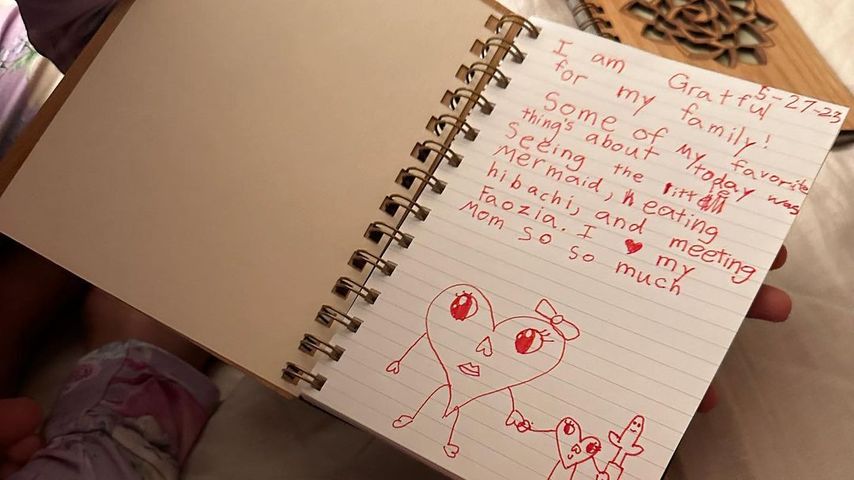 5-27-23
I am Gratful
for my family!
Some of my favorite
thing's about today was
Seeing the little
Mermaid, eating
hibachi, and meeting
Faozia. I ♥ my
Mom so so much